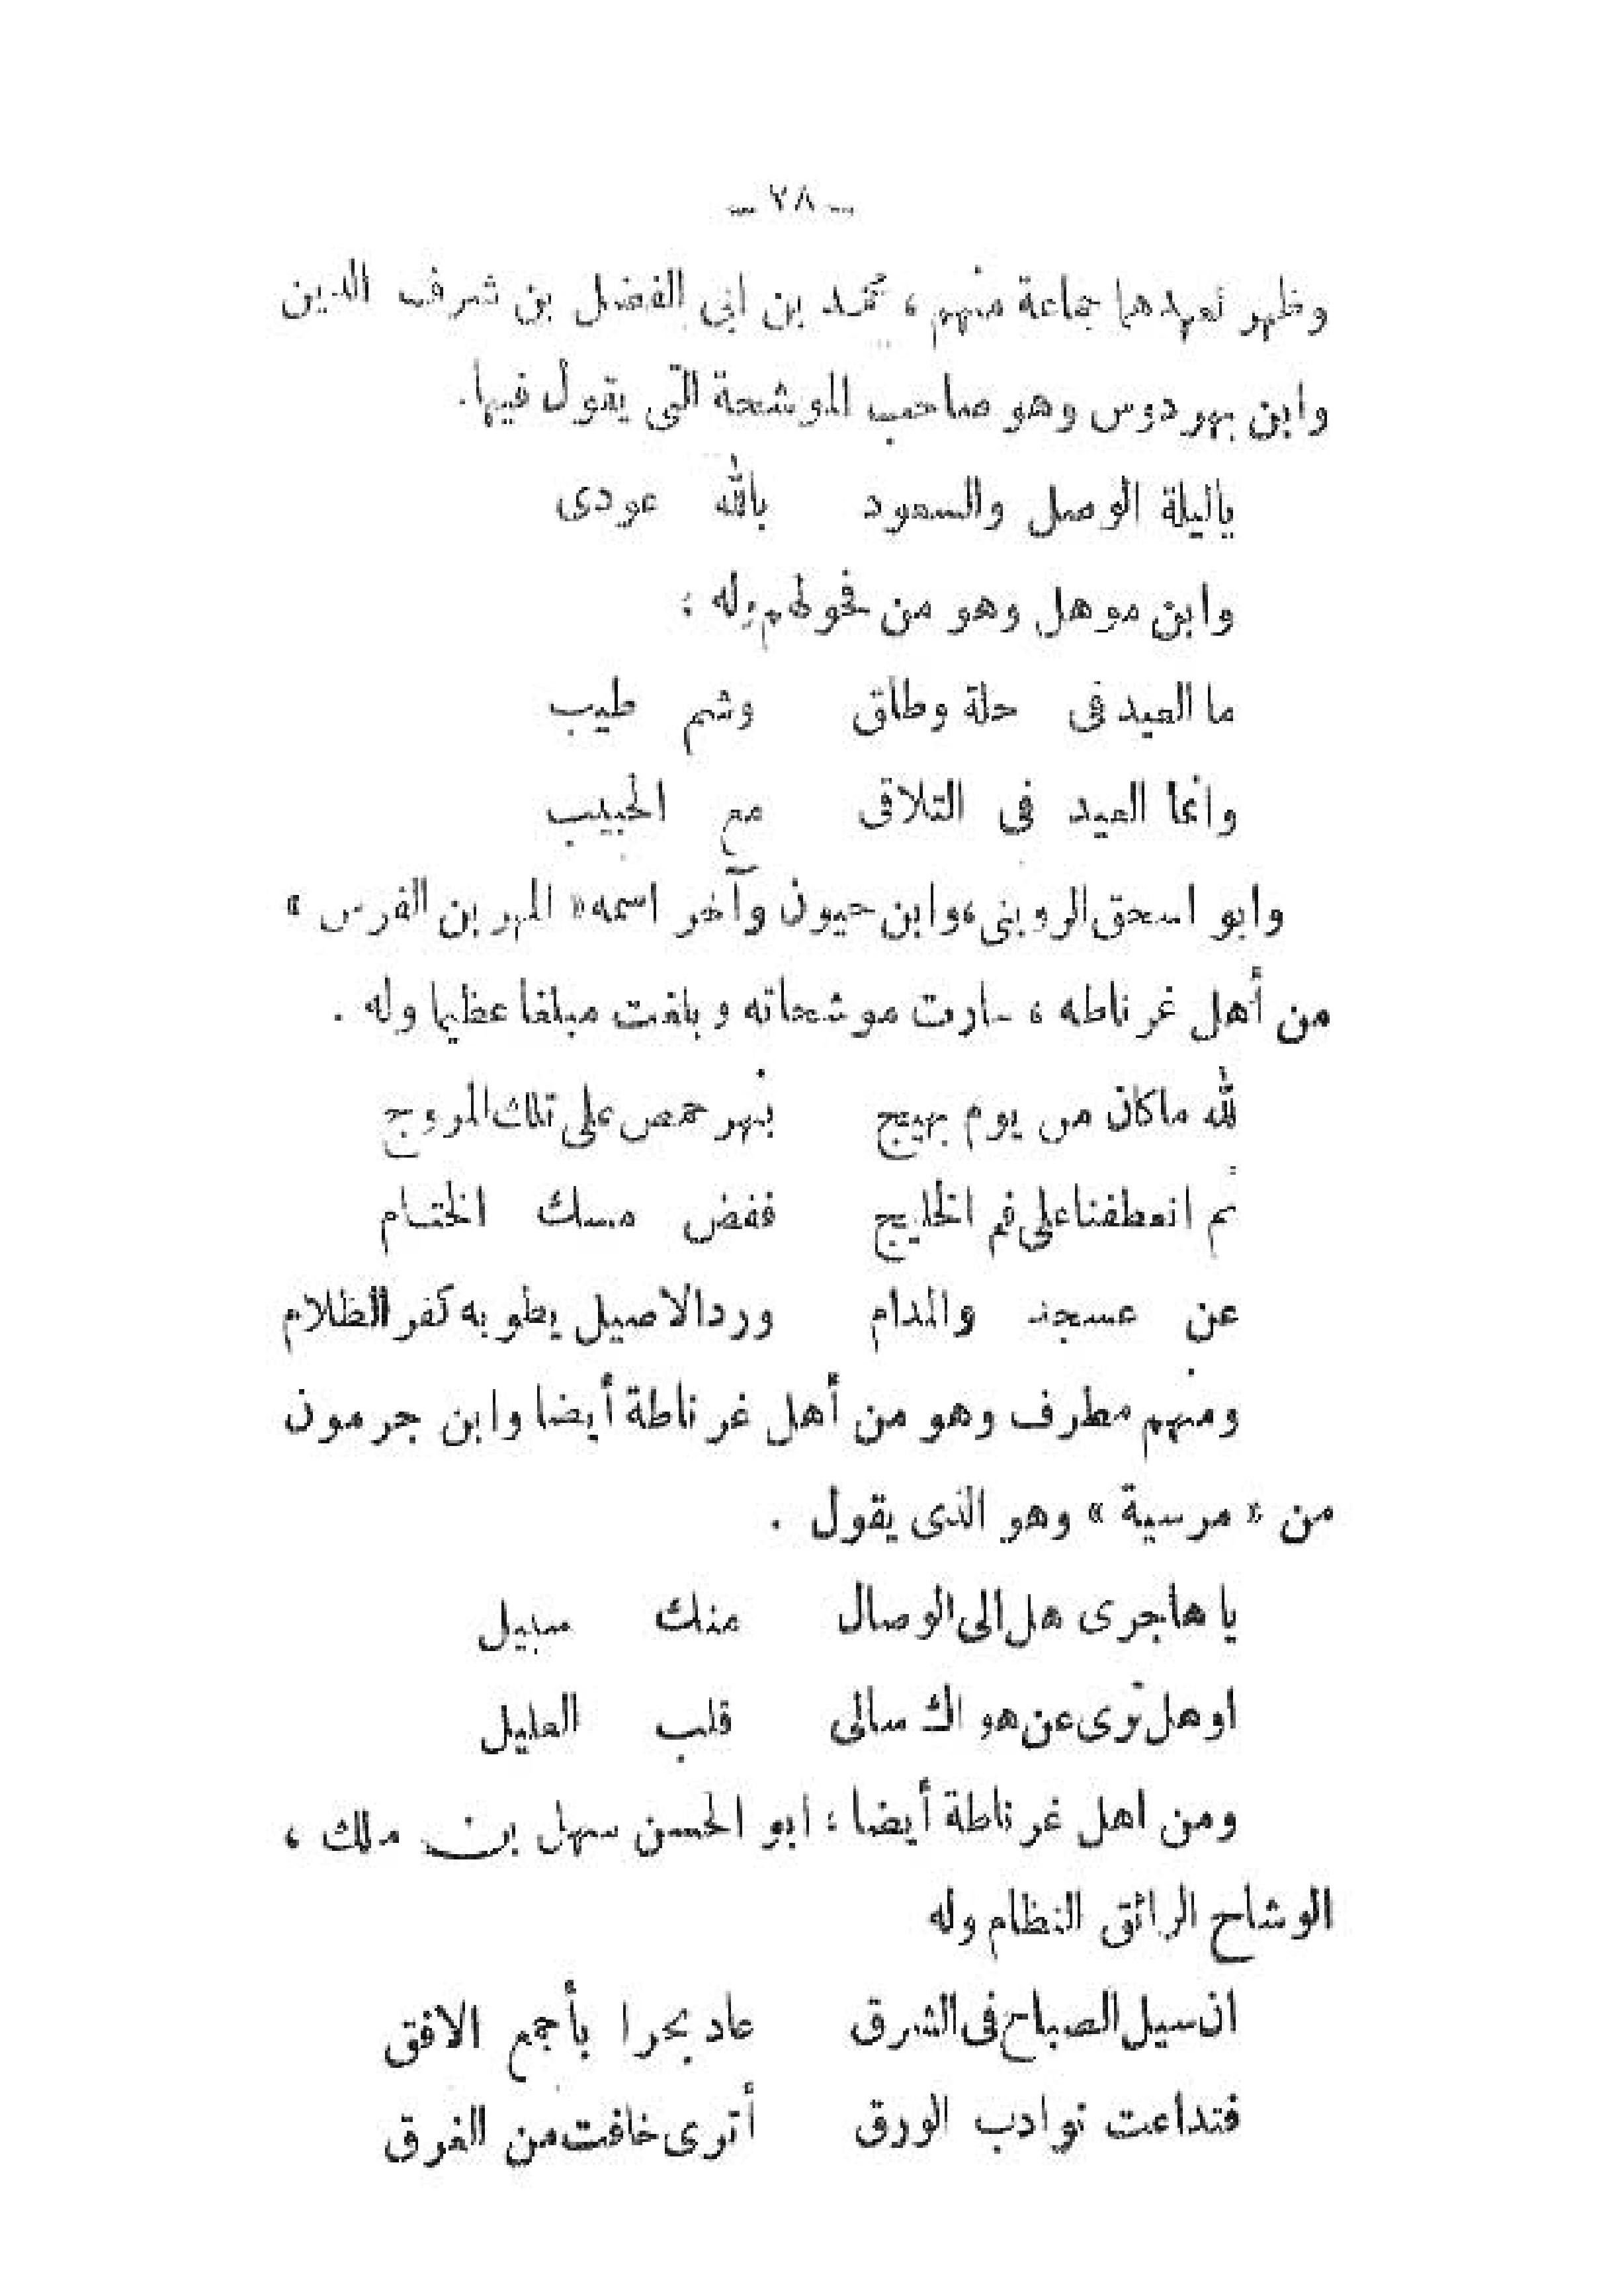 — ٧٨ —
وظهر بعدهما جماعة منهم ، محمد بن ابى الفضل بن شرف الدين
وابن بهردوس وهو صاحب الموشحة التى يقول فيها.
ياليلة الوصل والسعود بالله عودى
وابن موهل وهو من فحولهم وله :
ما العيد فى حلة وطاق وشم طيب
وانما العيد فى التلاقى مع الحبيب
وابو اسحق الروينى، وابن حيون وآخر اسمه « المهر بن الفرس »
من أهل غرناطه ، سارت موشحاته وبلغت مبلغا عظيما وله .
لله ماكان من يوم بهيج بنهر حمص على تلك المروج
ثم انعطفنا على فم الخليج ففض مسك الختام
عن عسجد والمدام ورد الاصيل يطويه كفر الظلام
ومنهم مطرف وهو من أهل غرناطة أيضا وابن جرمون
من « مرسية » وهو الذى يقول .
يا هاجرى هل الى الوصال منك سبيل
او هل ترى عن هواك سالى قلب العليل
ومن اهل غرناطة أيضا ؛ ابو الحسن سهل بن ملك ،
الوشاح الرائق النظام وله
ان سيل الصباح فى الشرق عاد بحرا بأجمع الافق
فتداعت نوادب الورق أترى خافت من الغرق